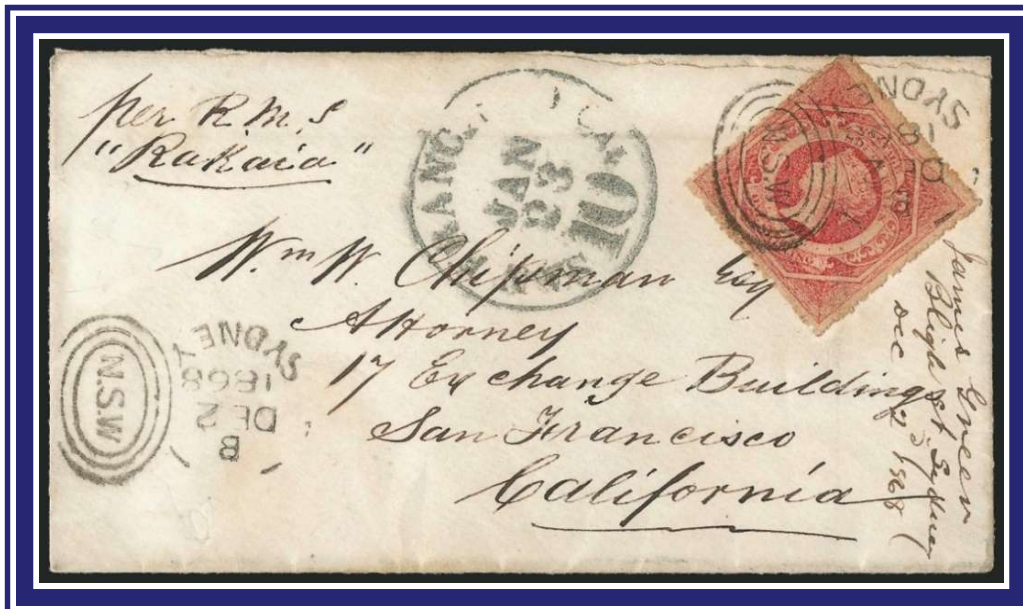 per R.M.S
"Rakaia"
SAN FRANCISCO CAL.
JAN
23
10
Wm W. Chipman Esq
Attorney
17 Exchange Building
San Francisco
California
SYDNEY
1868
DE 2
B
N.S.W
N.S.W
SYDNEY
DE 2
B
James Green
Bligh St Sydney
Dec 2, 1868